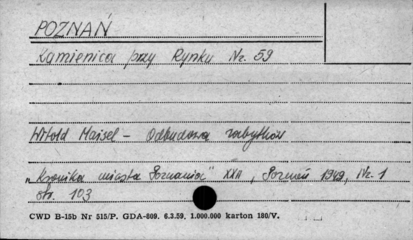 POZNAŃ
Kamienica przy Rynku Nr. 59
Witold Maisel - Odbudowa zabytków
„Kronika miasta Poznania" XXII, Poznań 1949, Nr. 1
str. 103
CWD B-15b Nr 515/P. GDA-809. 6.3.59. 1.000.000 karton 180/V.